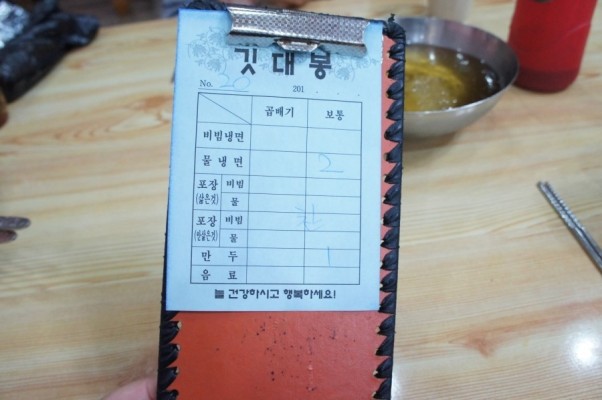 깃대봉
No. 20 201 .
곱빼기 보통
비빔냉면
물냉면 2
포장 (삶은것) 비빔
물
포장 (안삶은것) 비빔
물
만두 1
음료
늘 건강하시고 행복하세요!